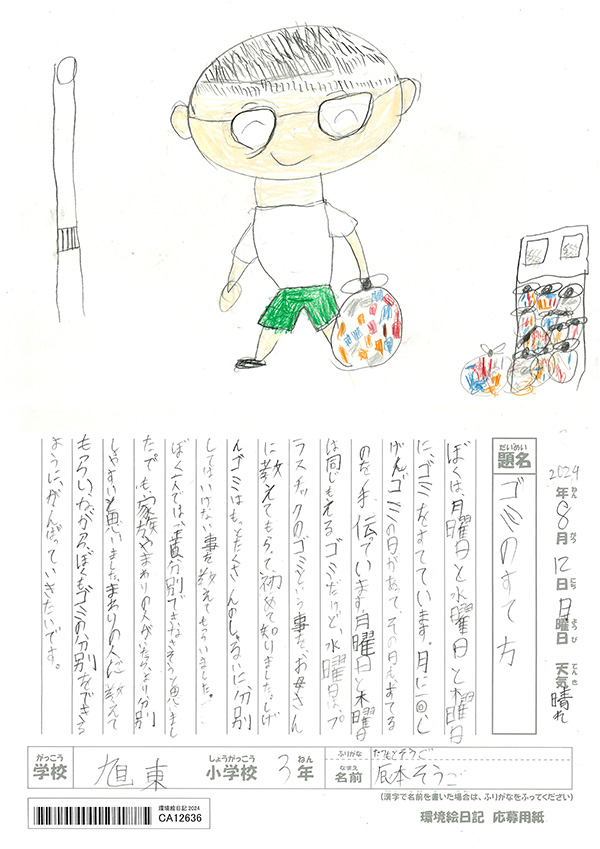 2024年8月12日月曜日 天気晴れ
ねん がつ にち ようび てんき
だいめい
題名 ゴミのすて方
ぼくは、月曜日と水曜日と木曜日
に、ゴミをすてています。月に一回し
げんゴミの日があって、その日もすてる
のを手伝ています。月曜日と木曜日
は同じもえるゴミだけど、水曜日は、プ
ラスチックのゴミという事を、お母さん
に教えてもらって、初めて知りました。しげ
んゴミはもっとたくさんのしゅるいに分別
しなくてはいけない事を教えてもらいました。
ぼく一人では、全責分別できなさそうと思いまし
た。でも、家族やまわりの人がいたら、より分別
しやすいと思いました。まわりの人に教えて
もらいながら、ぼくもゴミの分別をできる
ように、がんばっていきたいです。
がっこう しょうがっこう ねん
学校 旭東 小学校 3年
ふりがな たつもとそうご
なまえ
名前 辰本そうご
(漢字で名前を書いた場合は、ふりがなをふってください)
環境絵日記2024
CA12636
環境絵日記 応募用紙